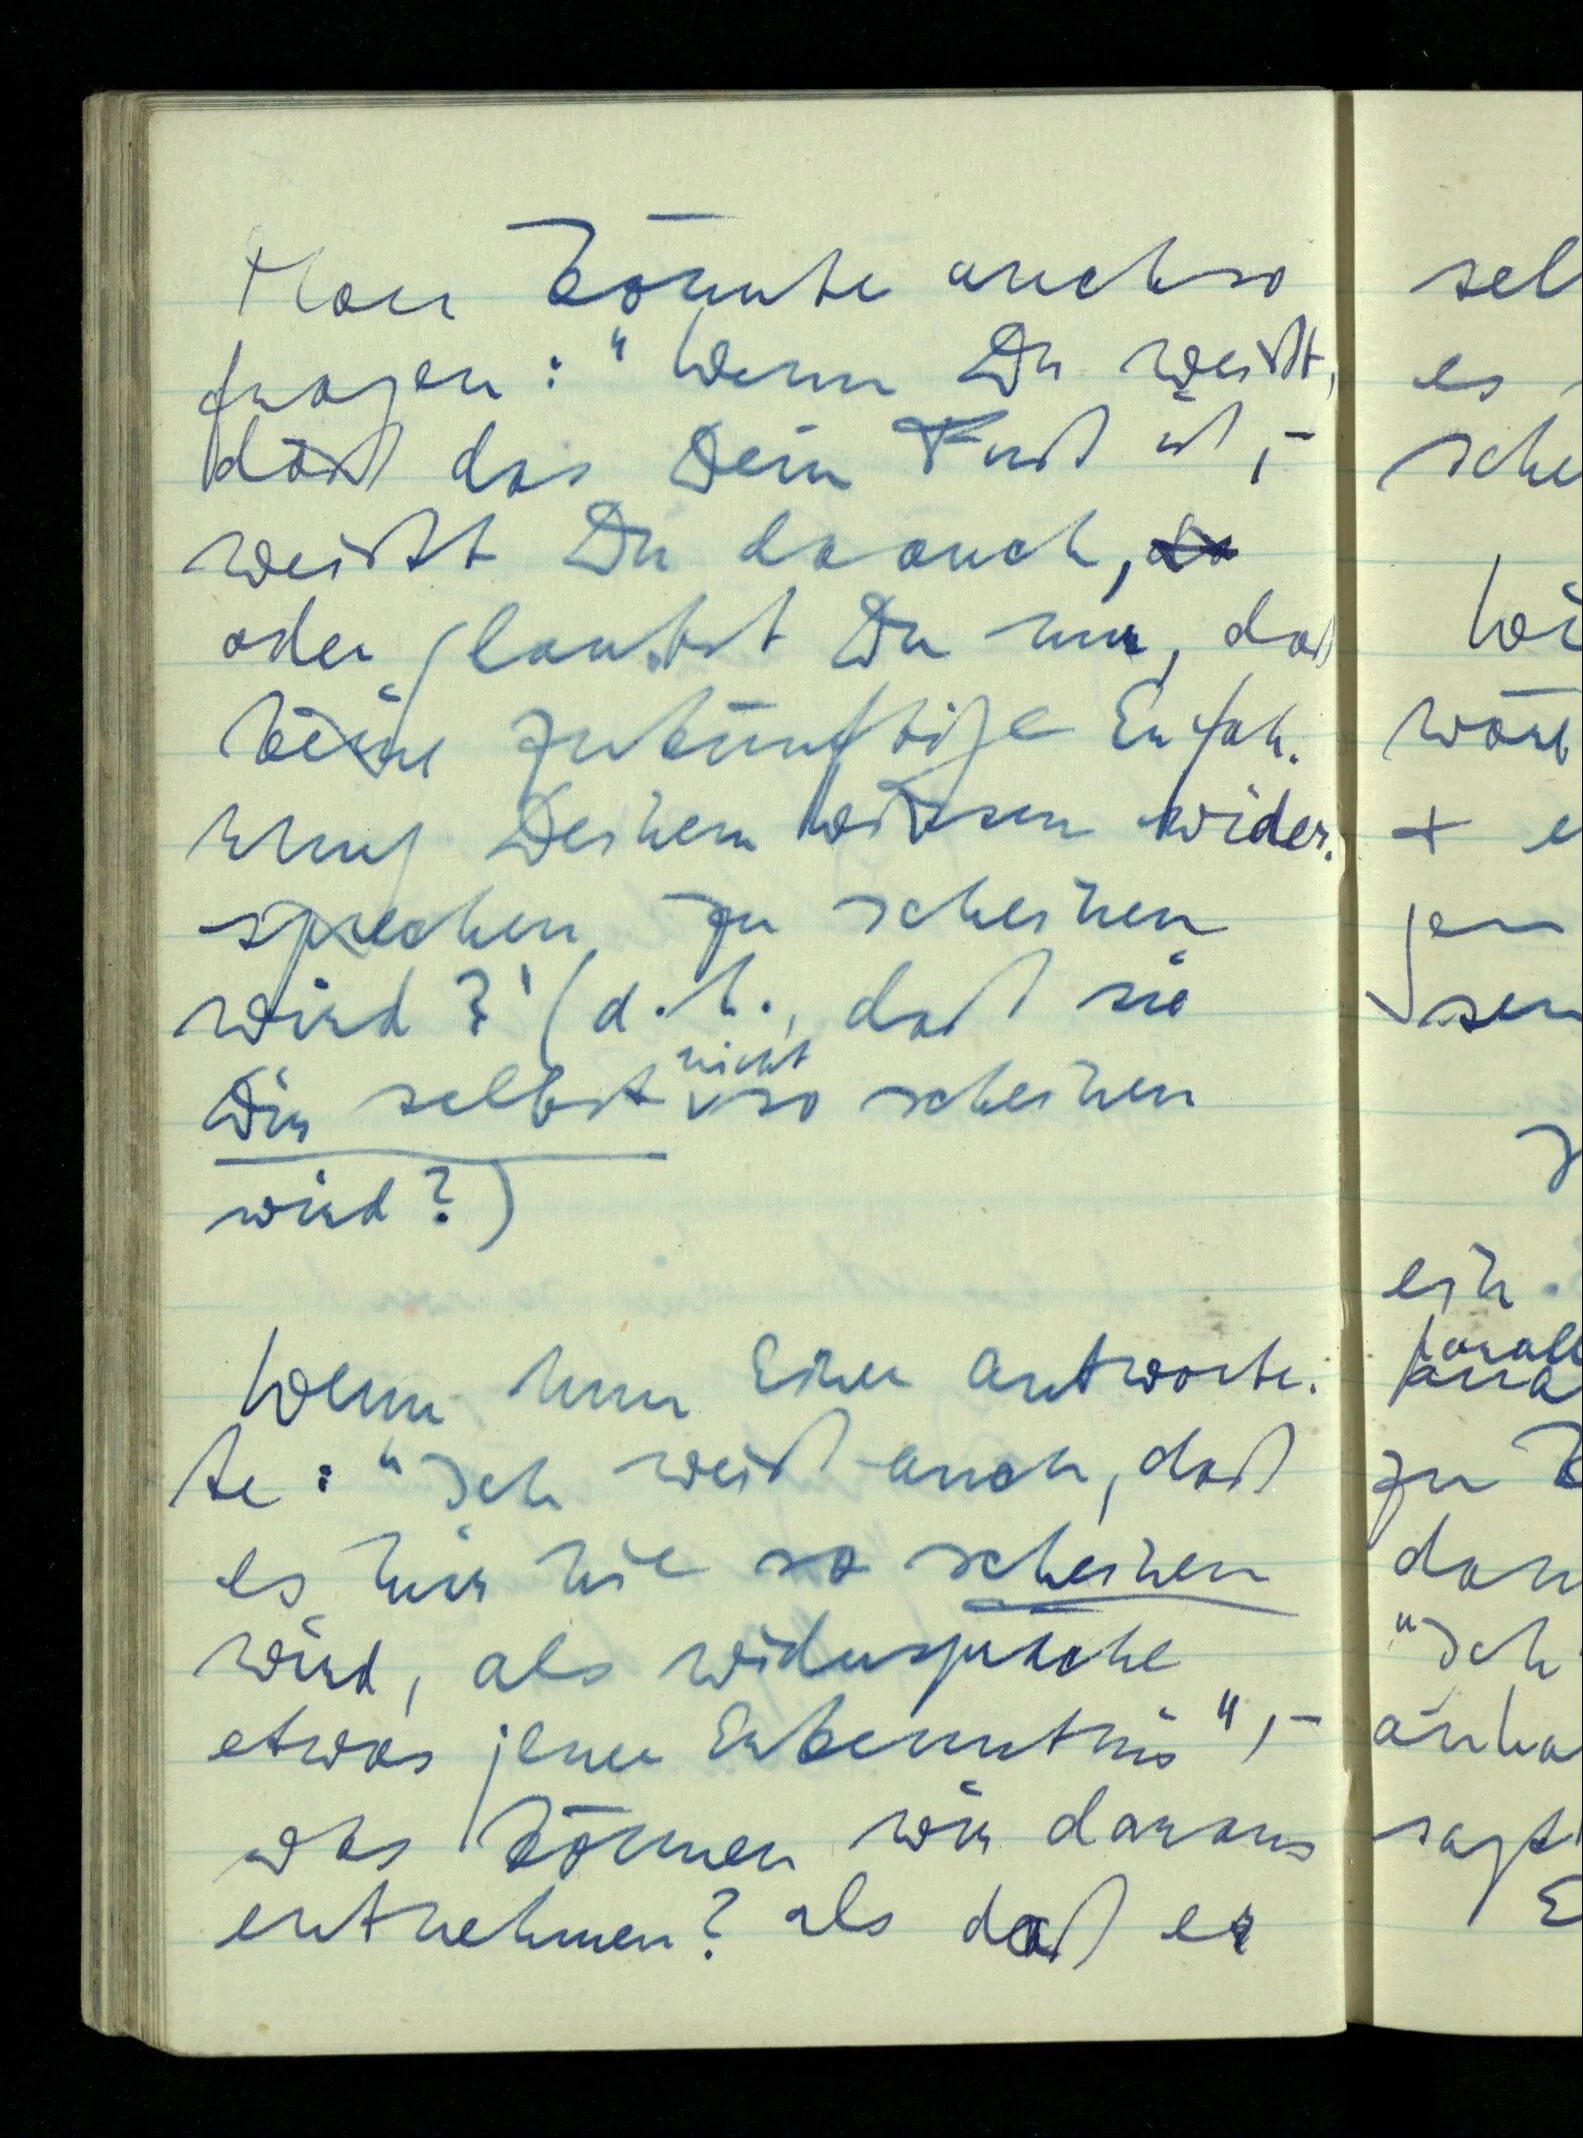 Man könnte auch so
fragen: "Wenn Du weißt,
daß das Dein Fuß ist, –
weißt Du da auch, da
oder glaubst Du nur, daß
keine zukünftige Erfah-
rung Deinem Wissen wider-
sprechen zu scheinen
wird?" (d.h., daß sie
nicht
Dir selbst so scheinen
wird?)
Wenn nun Einer antworte-
te: "Ich weiß auch, daß
es mir nie so scheinen
wird, als widerspräche
etwas jener Erkenntnis", –
was können wir daraus
entnehmen? als daß er
sel
es
sche
+ e
jen
sen
ein.
zu
dan
"Ich
sagt
E